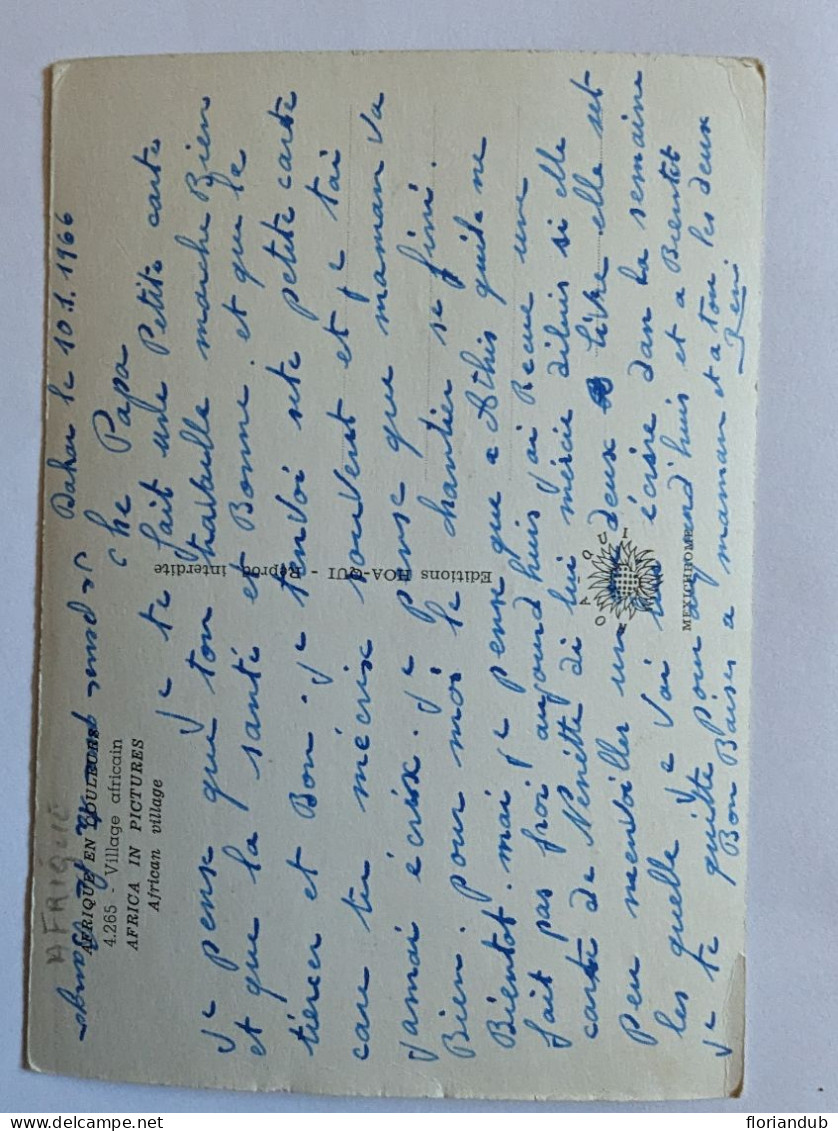 AFRIQUE
AFRIQUE EN COULEURS
4.265 - Village africain
AFRICA IN PICTURES
African village
Editions HOA-QUI - Reprod interdite
HOA-QUI
MEXICHROME
Dakar le 10.1.1966
Che Papa
Je te fait une Petite carte
Je pense que ton marche Bien
et que la santé et Bonne. et que le
tiercer et Bon. Je tenvoi sete petite carte
care tu mécrix souvent et je tai
Jamai écrix. Je Pense que maman va
Bien. pour moi le chantier se fini.
Bientot. mai je pense que a Athis quil ne
fait pas froi aujourd'huis jai Recue une
carte de Nénette di lui mercie si elle
Peu un deux livre elle set
les quelle je vai écrire dan la semaine
Je te quitte Pour aujourd'huis et a Bientot
Bon Baiser a maman et a tou les deux
Remi